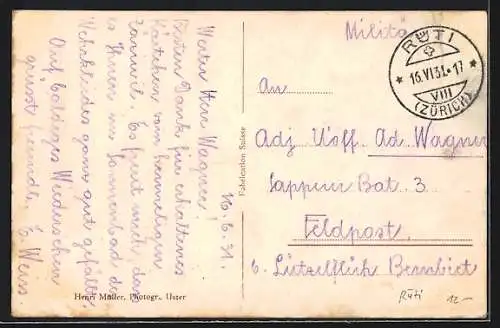 16.6.31.
Werter Herr Wagner!
Besten Dank für erhaltenes
Kärtchen vom heimeligen
Es freut mich, dass
es Ihnen im Sonnenbad des
Wehrkleides ganz gut gefällt.
Auf baldiges Wiedersehen
grüsst freundl. E. Weiss.
Henri Müller, Photogr., Uster
Fabrication Suisse
Militä
RÜTI
16.VI.31.-17
VIII
(ZÜRICH)
An
Adj. Uoff. Ad. Wagner
Sappeur Bat. 3
Feldpost.
b. Lützelflüh Bernbiet
Rüti
12.-